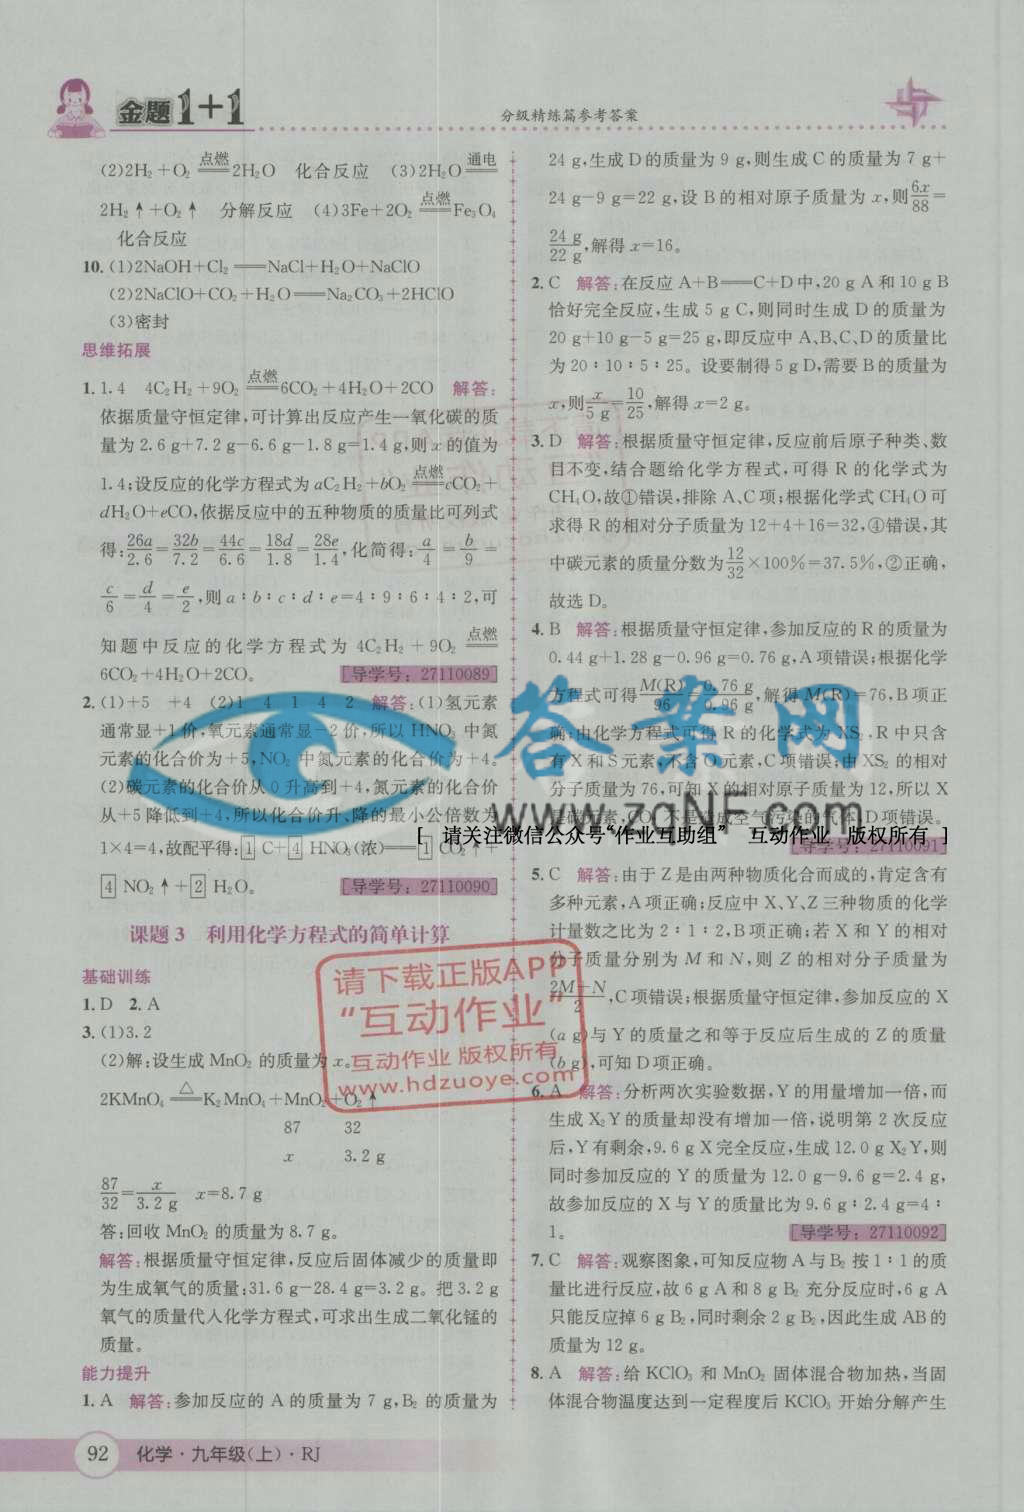 金题1+1
分级精练篇参考答案
(2)2H₂+O₂ 点燃══ 2H₂O 化合反应 (3)2H₂O 通电══
2H₂↑+O₂↑ 分解反应 (4)3Fe+2O₂ 点燃══ Fe₃O₄
化合反应
10. (1)2NaOH+Cl₂══NaCl+H₂O+NaClO
(2)2NaClO+CO₂+H₂O══Na₂CO₃+2HClO
(3)密封
思维拓展
1. 1.4 4C₂H₂+9O₂ 点燃══ 6CO₂+4H₂O+2CO 解答:
依据质量守恒定律,可计算出反应产生一氧化碳的质
量为2.6 g+7.2 g-6.6 g-1.8 g=1.4 g,则x的值为
1.4;设反应的化学方程式为aC₂H₂+bO₂ 点燃══ cCO₂+
dH₂O+eCO,依据反应中的五种物质的质量比可列式
得:26a/2.6=32b/7.2=44c/6.6=18d/1.8=28e/1.4,化简得:a/4=b/9=
c/6=d/4=e/2,则a∶b∶c∶d∶e=4∶9∶6∶4∶2,可
知题中反应的化学方程式为4C₂H₂+9O₂ 点燃══
6CO₂+4H₂O+2CO。 导学号:27110089
2. (1)+5 +4 (2)1 4 1 4 2 解答:(1)氢元素
通常显+1价,氧元素通常显-2价,所以HNO₃中氮
元素的化合价为+5,NO₂中氮元素的化合价为+4。
(2)碳元素的化合价从0升高到+4,氮元素的化合价
从+5降低到+4,所以化合价升、降的最小公倍数为
1×4=4,故配平得:1 C+4 HNO₃(浓)══1 CO₂↑+
4 NO₂↑+2 H₂O。 导学号:27110090
课题3 利用化学方程式的简单计算
基础训练
1. D 2. A
3. (1)3.2
(2)解:设生成MnO₂的质量为x。
2KMnO₄ △══ K₂MnO₄+MnO₂+O₂↑
87 32
x 3.2 g
87/32=x/3.2 g x=8.7 g
答:回收MnO₂的质量为8.7 g。
解答:根据质量守恒定律,反应后固体减少的质量即
为生成氧气的质量:31.6 g-28.4 g=3.2 g。把3.2 g
氧气的质量代人化学方程式,可求出生成二氧化锰的
质量。
能力提升
1. A 解答:参加反应的A的质量为7 g,B₂的质量为
24 g,生成D的质量为9 g,则生成C的质量为7 g+
24 g-9 g=22 g,设B的相对原子质量为x,则6x/88=
24 g/22 g,解得x=16。
2. C 解答:在反应A+B══C+D中,20 g A和10 g B
恰好完全反应,生成5 g C,则同时生成D的质量为
20 g+10 g-5 g=25 g,即反应中A、B、C、D的质量比
为20∶10∶5∶25。设要制得5 g D,需要B的质量为
x,则x/5 g=10/25,解得x=2 g。
3. D 解答:根据质量守恒定律,反应前后原子种类、数
目不变,结合题给化学方程式,可得R的化学式为
CH₄O,故①错误,排除A、C项;根据化学式CH₄O可
求得R的相对分子质量为12+4+16=32,④错误,其
中碳元素的质量分数为12/32×100%=37.5%,②正确,
故选D。
4. B 解答:根据质量守恒定律,参加反应的R的质量为
0.44 g+1.28 g-0.96 g=0.76 g,A项错误;根据化学
方程式可得M(R)/96=0.76 g/0.96 g,解得M(R)=76,B项正
确;由化学方程式可得R的化学式为XS₂,R中只含
有X和S元素,不含O元素,C项错误;由XS₂的相对
分子质量为76,可知X的相对原子质量为12,所以X
是碳元素,CO₂不是造成空气污染的气体,D项错误。
导学号:27110091
5. C 解答:由于Z是由两种物质化合而成的,肯定含有
多种元素,A项正确;反应中X、Y、Z三种物质的化学
计量数之比为2∶1∶2,B项正确;若X和Y的相对
分子质量分别为M和N,则Z的相对分子质量为
(2M+N)/2,C项错误;根据质量守恒定律,参加反应的X
(a g)与Y的质量之和等于反应后生成的Z的质量
(b g),可知D项正确。
6. A 解答:分析两次实验数据,Y的用量增加一倍,而
生成X₂Y的质量却没有增加一倍,说明第2次反应
后,Y有剩余,9.6 g X完全反应,生成12.0 g X₂Y,则
同时参加反应的Y的质量为12.0 g-9.6 g=2.4 g,
故参加反应的X与Y的质量比为9.6 g∶2.4 g=4∶
1。 导学号:27110092
7. C 解答:观察图象,可知反应物A与B₂按1∶1的质
量比进行反应,故6 g A和8 g B₂充分反应时,6 g A
只能反应掉6 g B₂,同时剩余2 g B₂,因此生成AB的
质量为12 g。
8. A 解答:给KClO₃和MnO₂固体混合物加热,当固
体混合物温度达到一定程度后KClO₃开始分解产生
92 化学·九年级(上)·RJ
答案网
www.zqNF.com
[ 请关注微信公众号“作业互助组” 互动作业 版权所有 ]
请下载正版APP
“互动作业”
互动作业 版权所有
www.hdzuoye.com